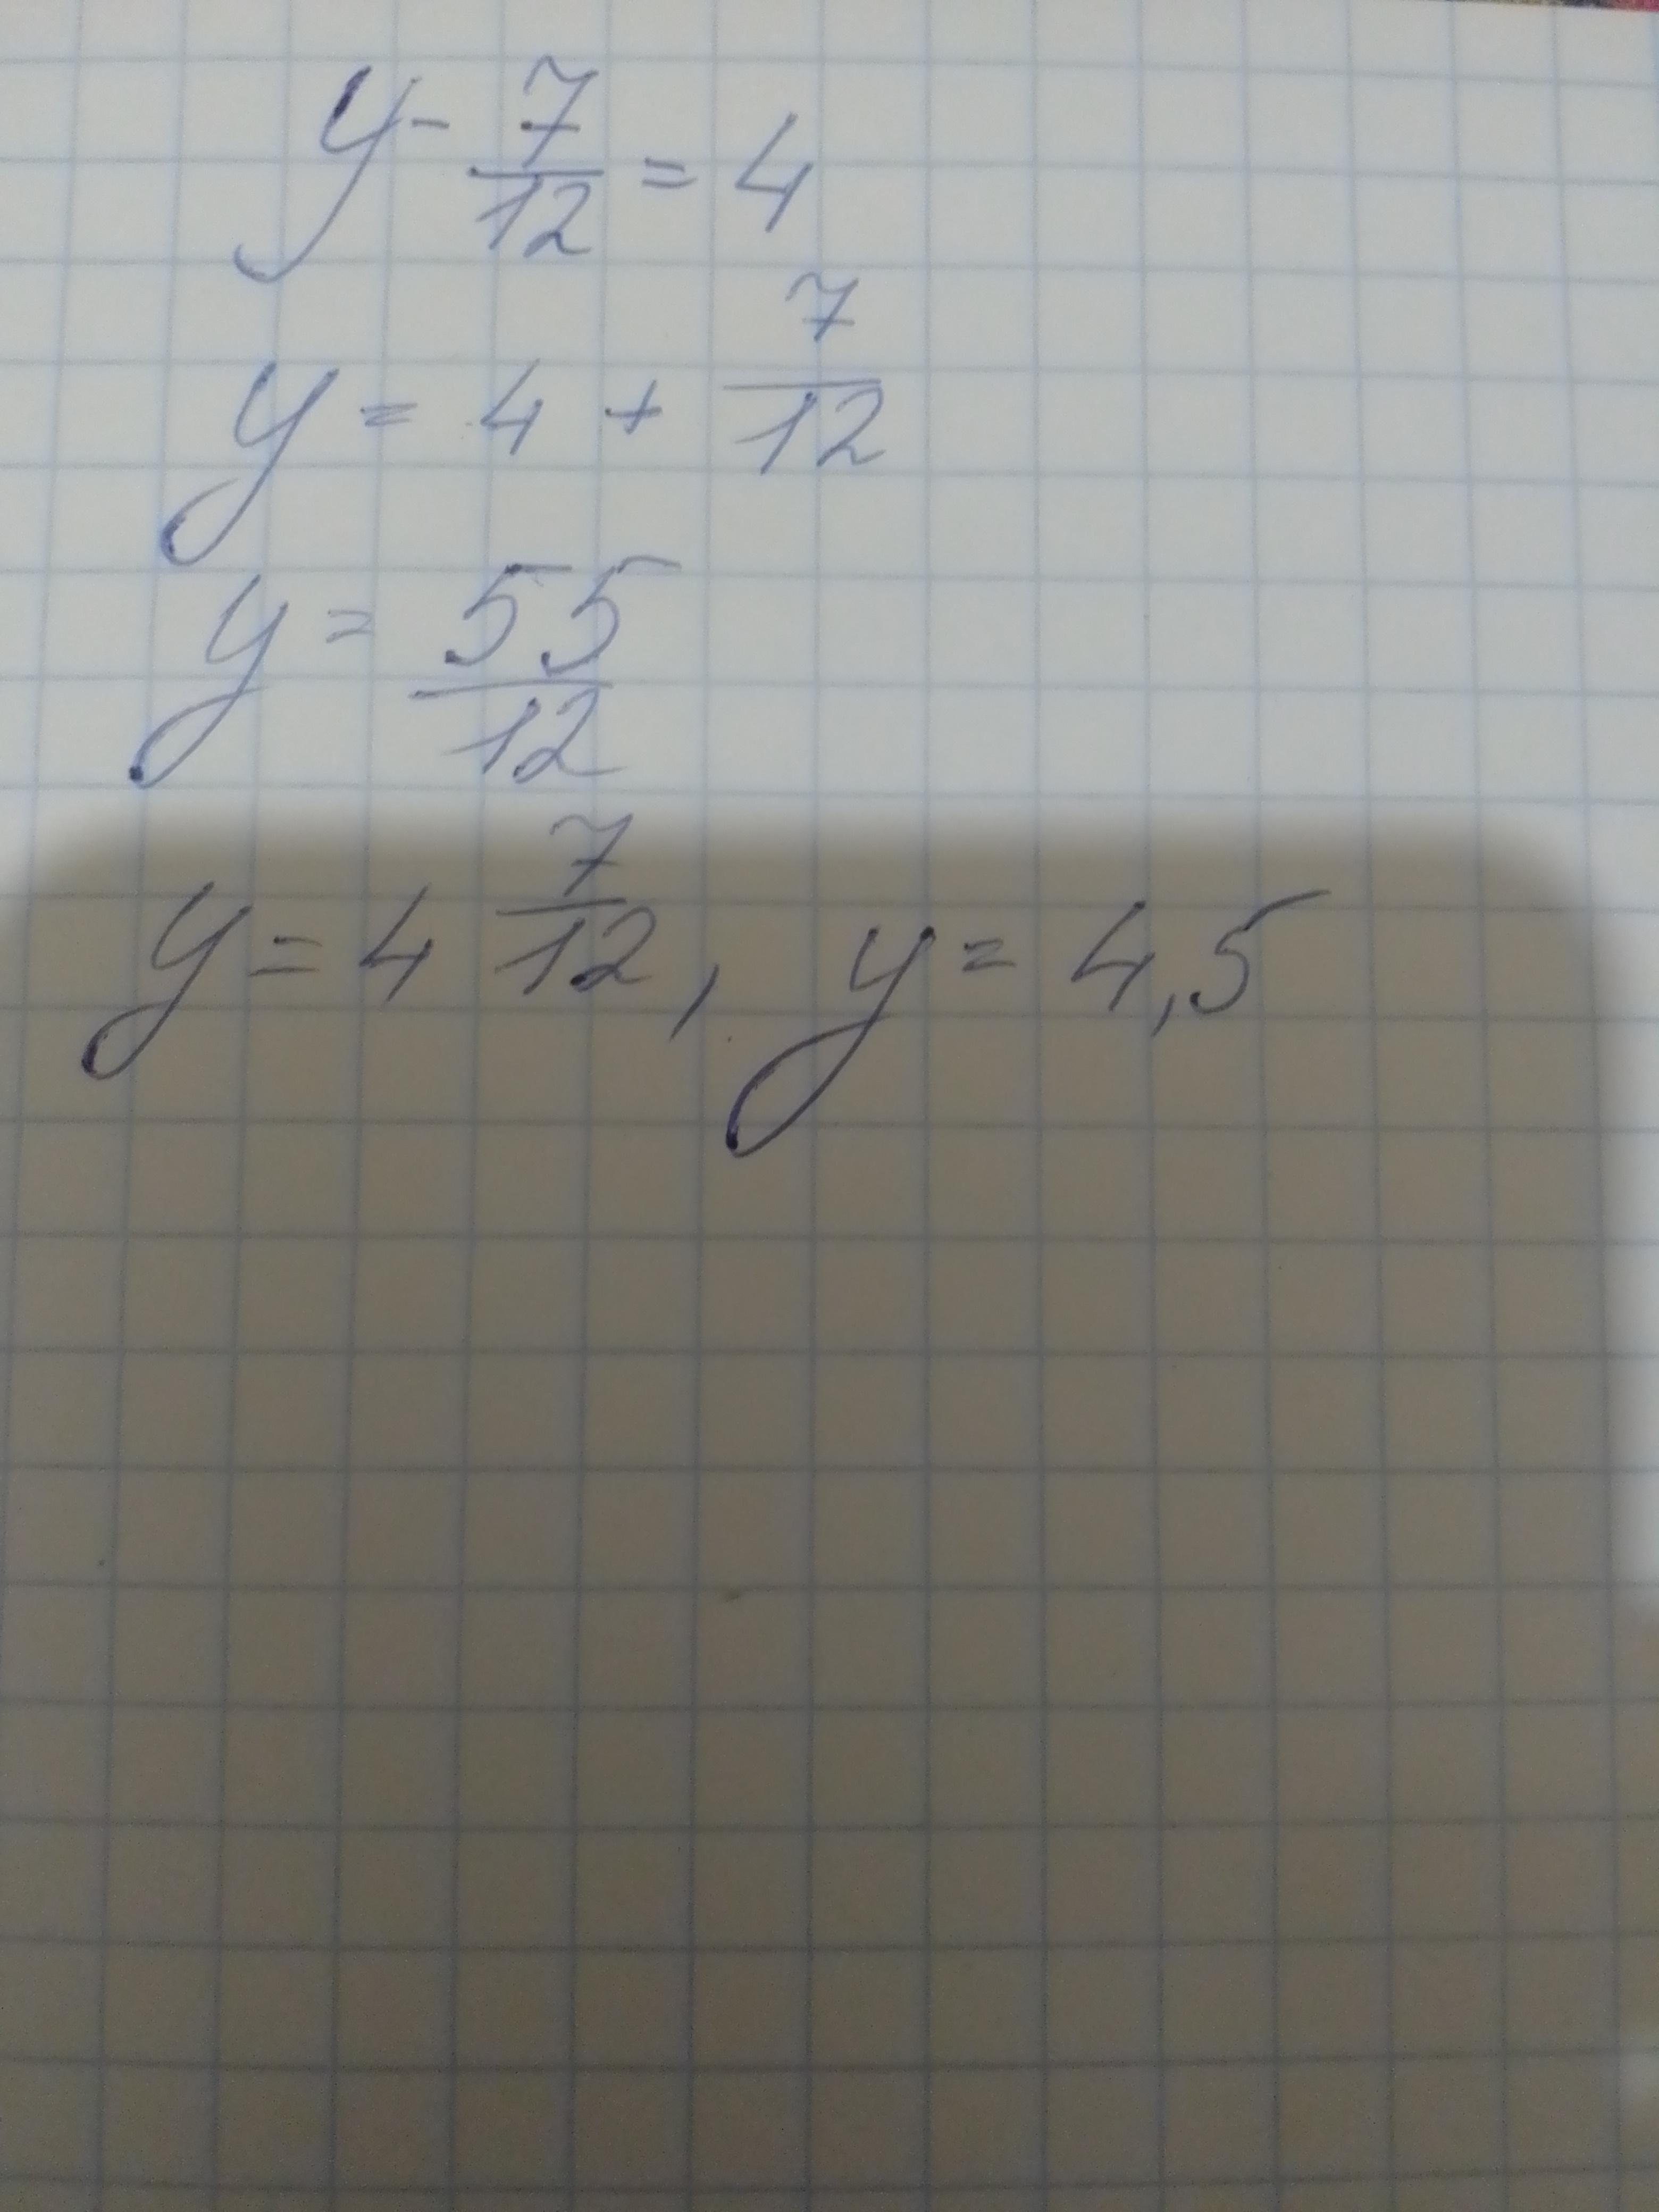 y - 7/12 = 4
y = 4 + 7/12
y = 55/12
y = 4 7/12, y = 4,5